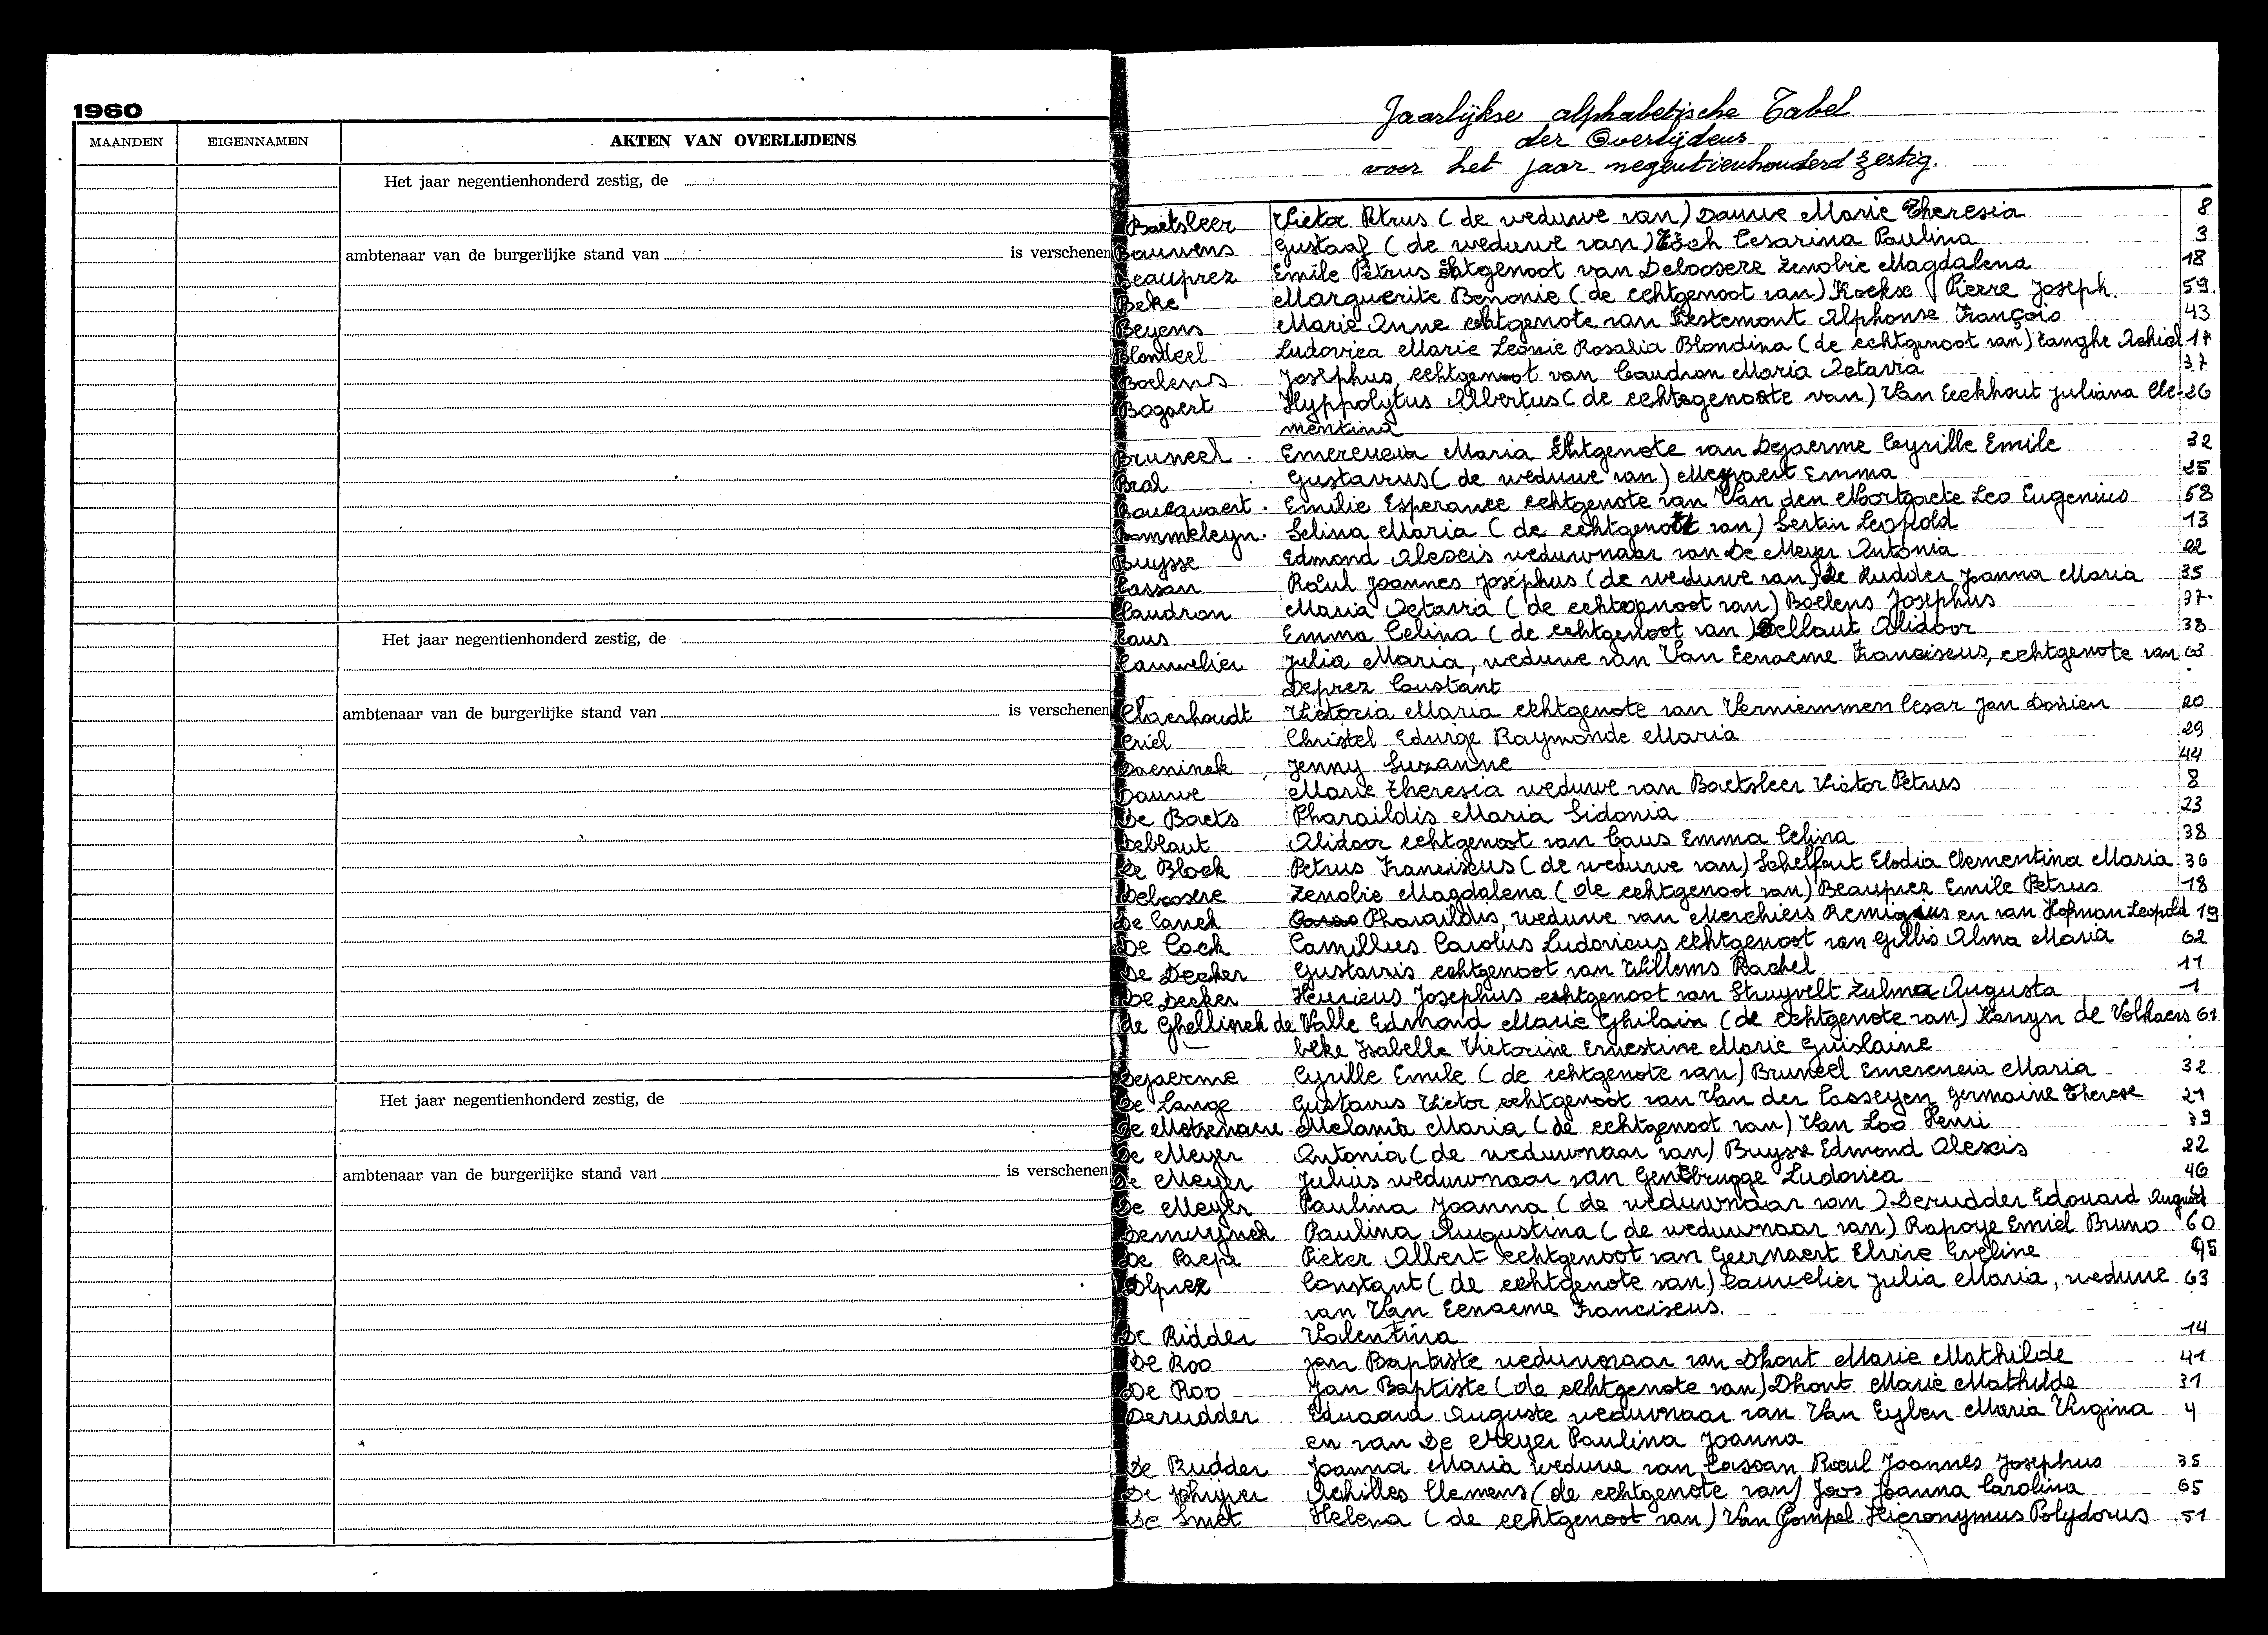 1960
MAANDEN EIGENNAMEN AKTEN VAN OVERLIJDENS
Het jaar negentienhonderd zestig, de
ambtenaar van de burgerlijke stand van is verschenen
Het jaar negentienhonderd zestig, de
ambtenaar van de burgerlijke stand van is verschenen
Het jaar negentienhonderd zestig, de
ambtenaar van de burgerlijke stand van is verschenen
Jaarlijkse alphabetische Tabel
der Overlijdens
voor het jaar negentienhonderd zestig.
Baetsleer Victor Petrus (de weduwe van) Dauwe Marie Theresia 8
Bauwens Gustaaf (de weduwe van) Cesarina Paulina 3
Beauprez Emile Petrus Echtgenoot van Deloosere Zenobie Magdalena 18
Beke Marguerite Benonie (de echtgenoot van) Pierre Joseph. 59.
Beyens Marie Anne echtgenote van Kestemont Alphonse François 43
Blondeel Ludovica Marie Leonie Rosalia Blondina (de echtgenoot van) Tanghe Achiel
Boelens Josephus, echtgenoot van Caudron Maria Octavia 37
Bogaert Hyppolytus Albertus (de echtgenoote van) Van Eeckhout Juliana Cle- 26
mentina
Bruneel Emerencia Maria Echtgenote van Dejaerme Cyrille Emile 32
Bral Gustavus (de weduwe van) Emma 25
Boucquaert Emilie Esperance echtgenote van Van den Noortgaete Leo Eugenius 58
Bommeleyn. Selina Maria (de echtgenoot van) Sertin Leopold 13
Buysse Edmond Alexis weduwnaar van De Meyer Antonia 22
Cassan Raoul Joannes Josephus (de weduwe van) De Rudder Joanna Maria 35
Caudron Maria Octavia (de echtgenoot van) Boelens Josephus 37.
Caus Emma Celina (de echtgenoot van) Deblaut Alidoor 38
Cauwelier Julia Maria, weduwe van Van Eenaeme Franciscus, echtgenote van 63
Deprez Constant
Claerhoudt Victoria Maria echtgenote van Verniemmen Cesar Jan 20
Criel Christel Edwige Raymonde Maria 29
Daeninck Jenny Suzanne 44
Dauwe Marie Theresia weduwe van Baetsleer Victor Petrus 8
De Baets Pharaildis Maria Sidonia 23
Deblaut Alidoor echtgenoot van Caus Emma Celina 38
De Block Petrus Franciscus (de weduwe van) Schelfaut Elodia Clementina Maria 36
Deloosere Zenobie Magdalena (de echtgenoot van) Beauprez Emile Petrus 18
De Canck Pharaildis, weduwe van Merchiers Remigius en van Hofman Leopold 19
De Cock Camillus Carolus Ludovicus echtgenoot van Gillis Alma Maria 62
De Decker Gustavis echtgenoot van Willems Rachel 11
De Decker Henricus Josephus echtgenoot van Struyvelt Zulma Augusta 1
de Ghellinck de Walle Edmond Marie Ghilain (de echtgenote van) Kervyn de Volkaers 61
beke Isabelle Victorine Ernestine Marie Guislaine
Dejaerme Cyrille Emile (de echtgenote van) Bruneel Emerencia Maria 32
De Lange Gustavus Victor echtgenoot van Van der Casseyen Germaine Therese 21
De Metsenaere Melania Maria (de echtgenoot van) Van Loo Henri 39
De Meyer Antonia (de weduwnaar van) Buysse Edmond Alexis 22
De Meyer Julius weduwnaar van Gentbrugge Ludovica 46
De Meyer Paulina Joanna (de weduwnaar van) Derudder Edouard August
Demuynck Paulina Augustina (de weduwnaar van) Rapoye Emiel Bruno 60
De Paepe Pieter Albert echtgenoot van Geernaert Elvire Eveline 45
Deprez Constant (de echtgenote van) Cauwelier Julia Maria, weduwe 63
van Van Eenaeme Franciscus.
De Ridder Valentina 14
De Roo Jan Baptiste weduwnaar van Dhont Marie Mathilde 41
De Roo Jan Baptiste (de echtgenote van) Dhont Marie Mathilde 31
Derudder Eduaard Auguste weduwnaar van Van Eylen Maria Virgina 4
en van De Meyer Paulina Joanna
De Rudder Joanna Maria weduwe van Cassan Raoul Joannes Josephus 35
De Schrijver Achilles Clemens (de echtgenote van) Joos Joanna Carolina 65
De Smet Helena (de echtgenoot van) Van Gompel Hieronymus Polydorus 51